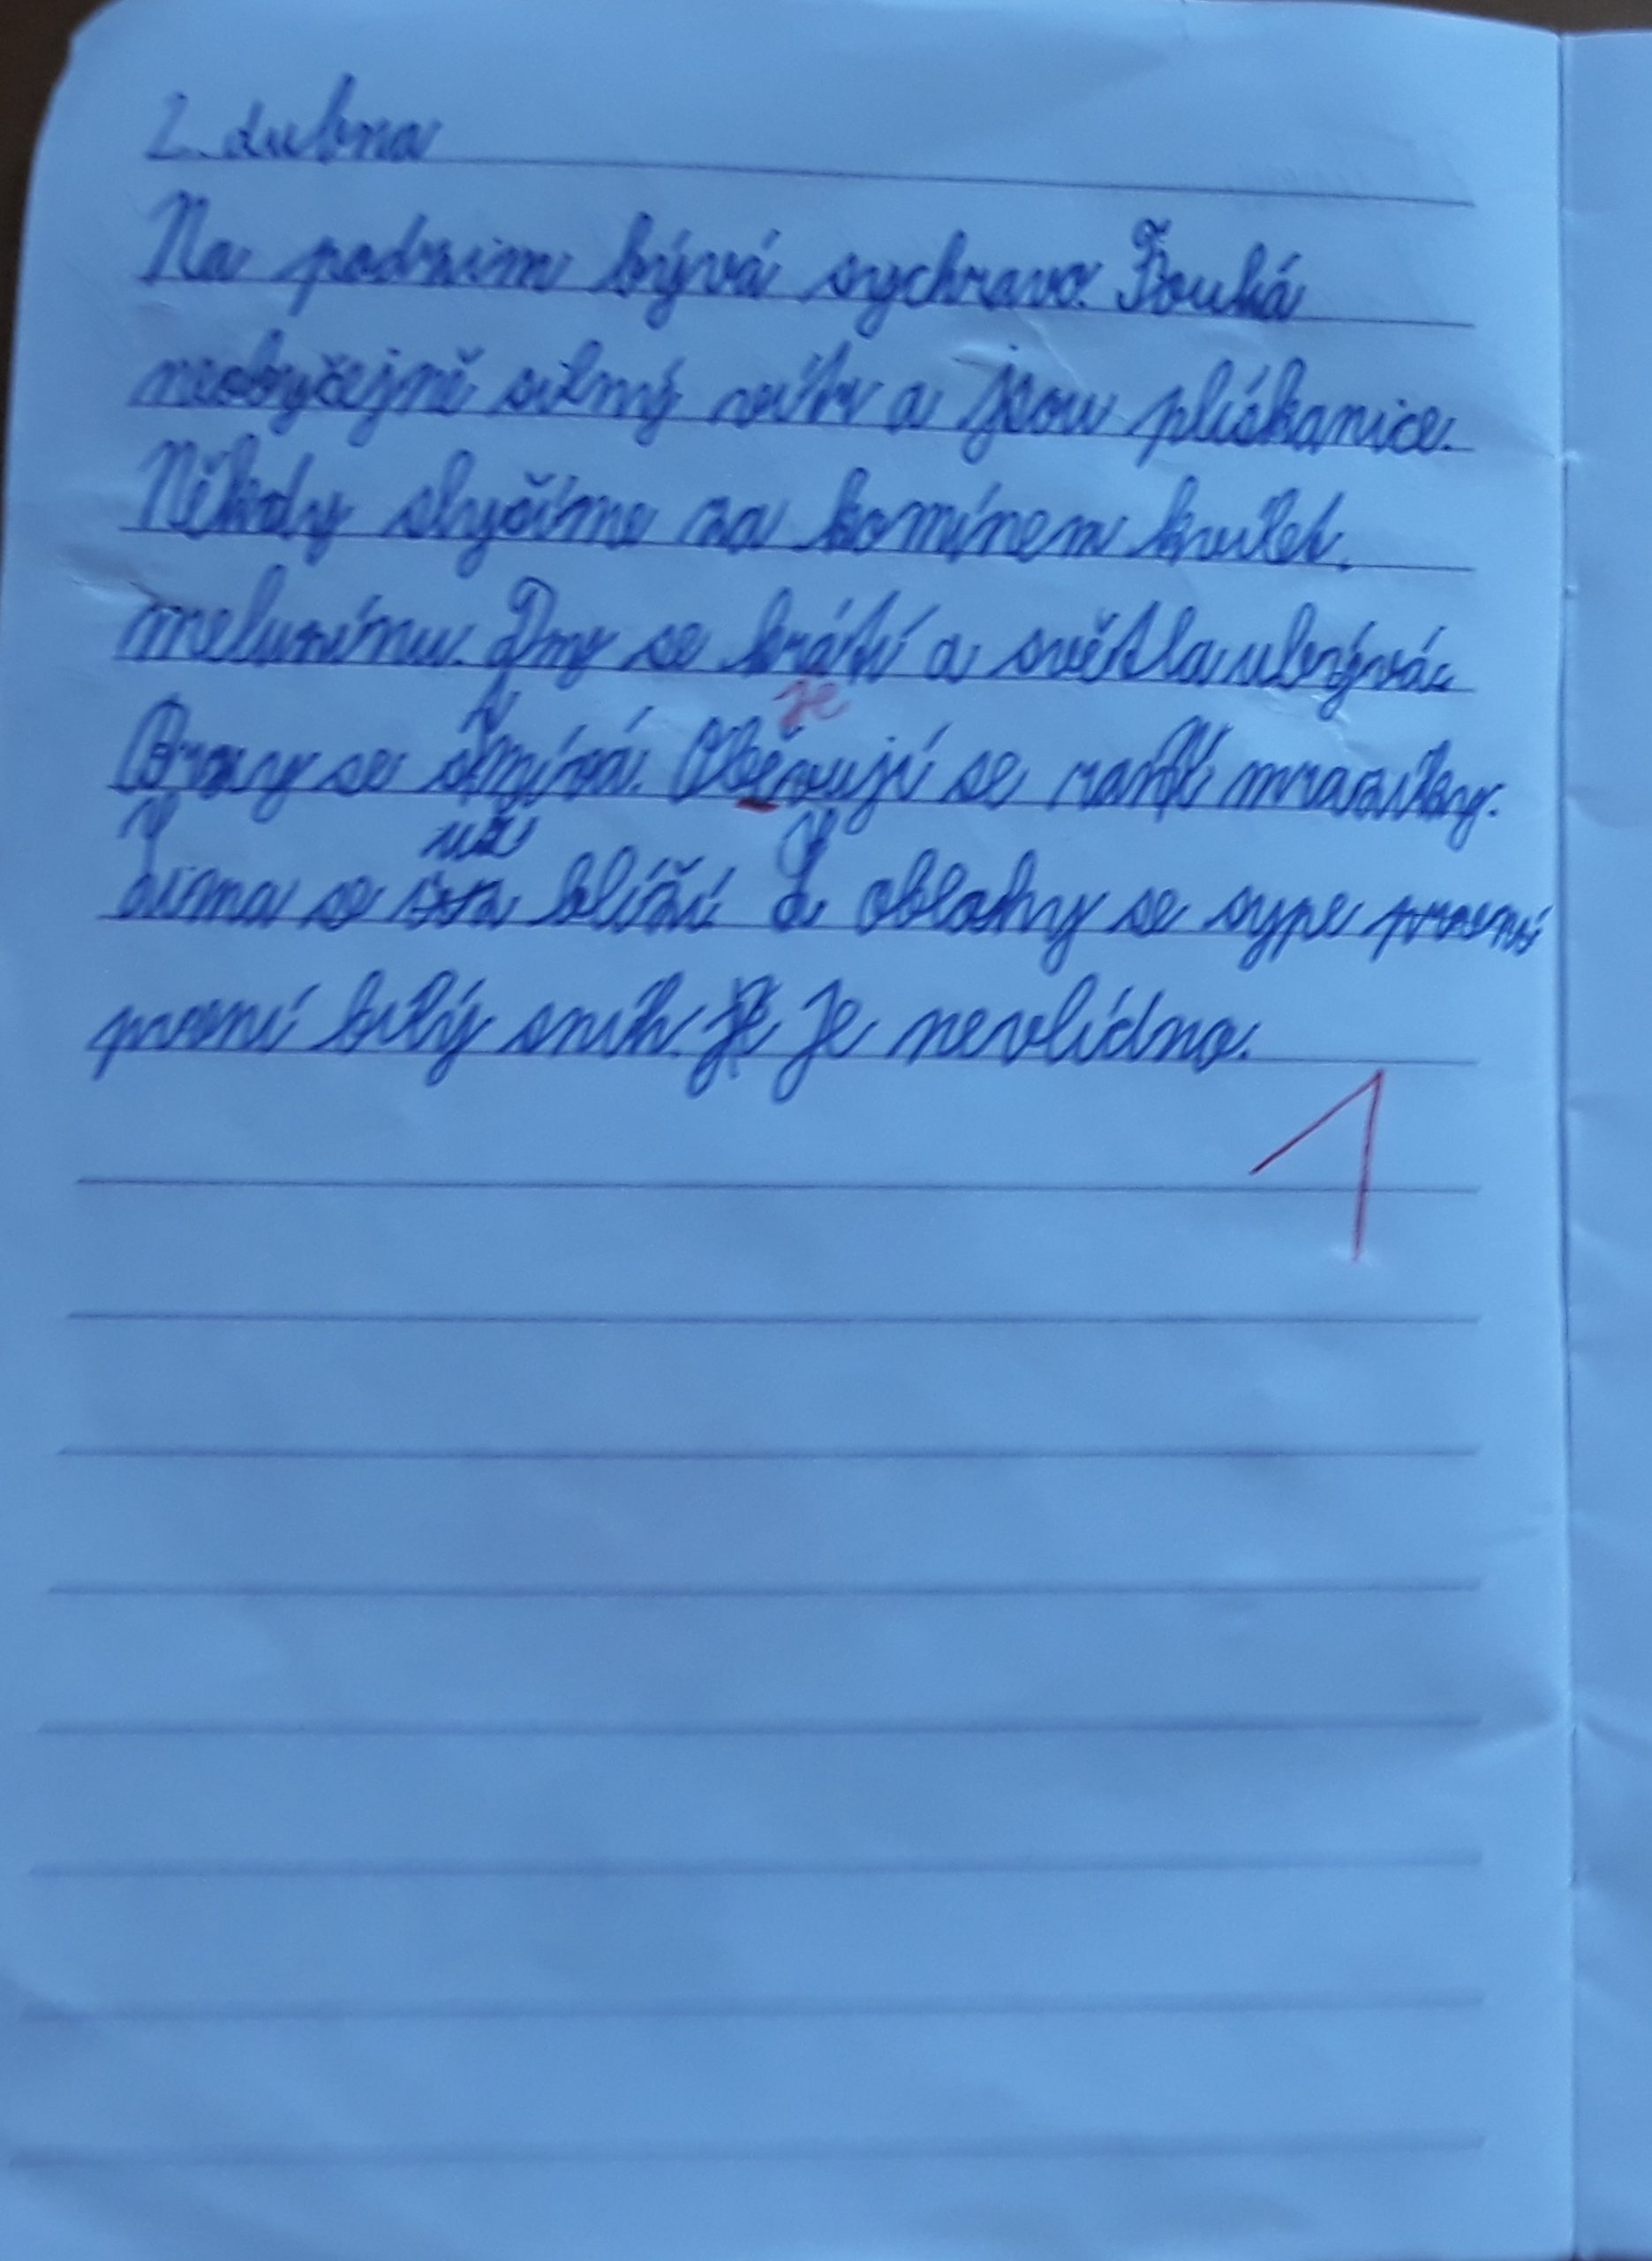 2. dubna
Na podzim bývá sychravo. Fouká
neobyčejně silný vítr a jsou plískanice.
Někdy slyšíme za komínem kvílet
melunínu. Dny se krátí a světla ubývá.
Brzy se stmívá. je
Oběvují se ranní mrazíky.
Zima se už blíží Z oblohy se sype
první bílý sníh. Je nevlídno.
1